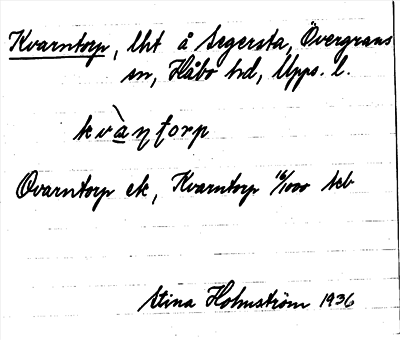 Kvarntorp, lht å Segersta, Övergrans
sn, Håbo hd, Upps. l.
kvàɳʈorp
Qvarntorp ek, Kvarntorp 16/1000 jeb
Stina Holmström 1936